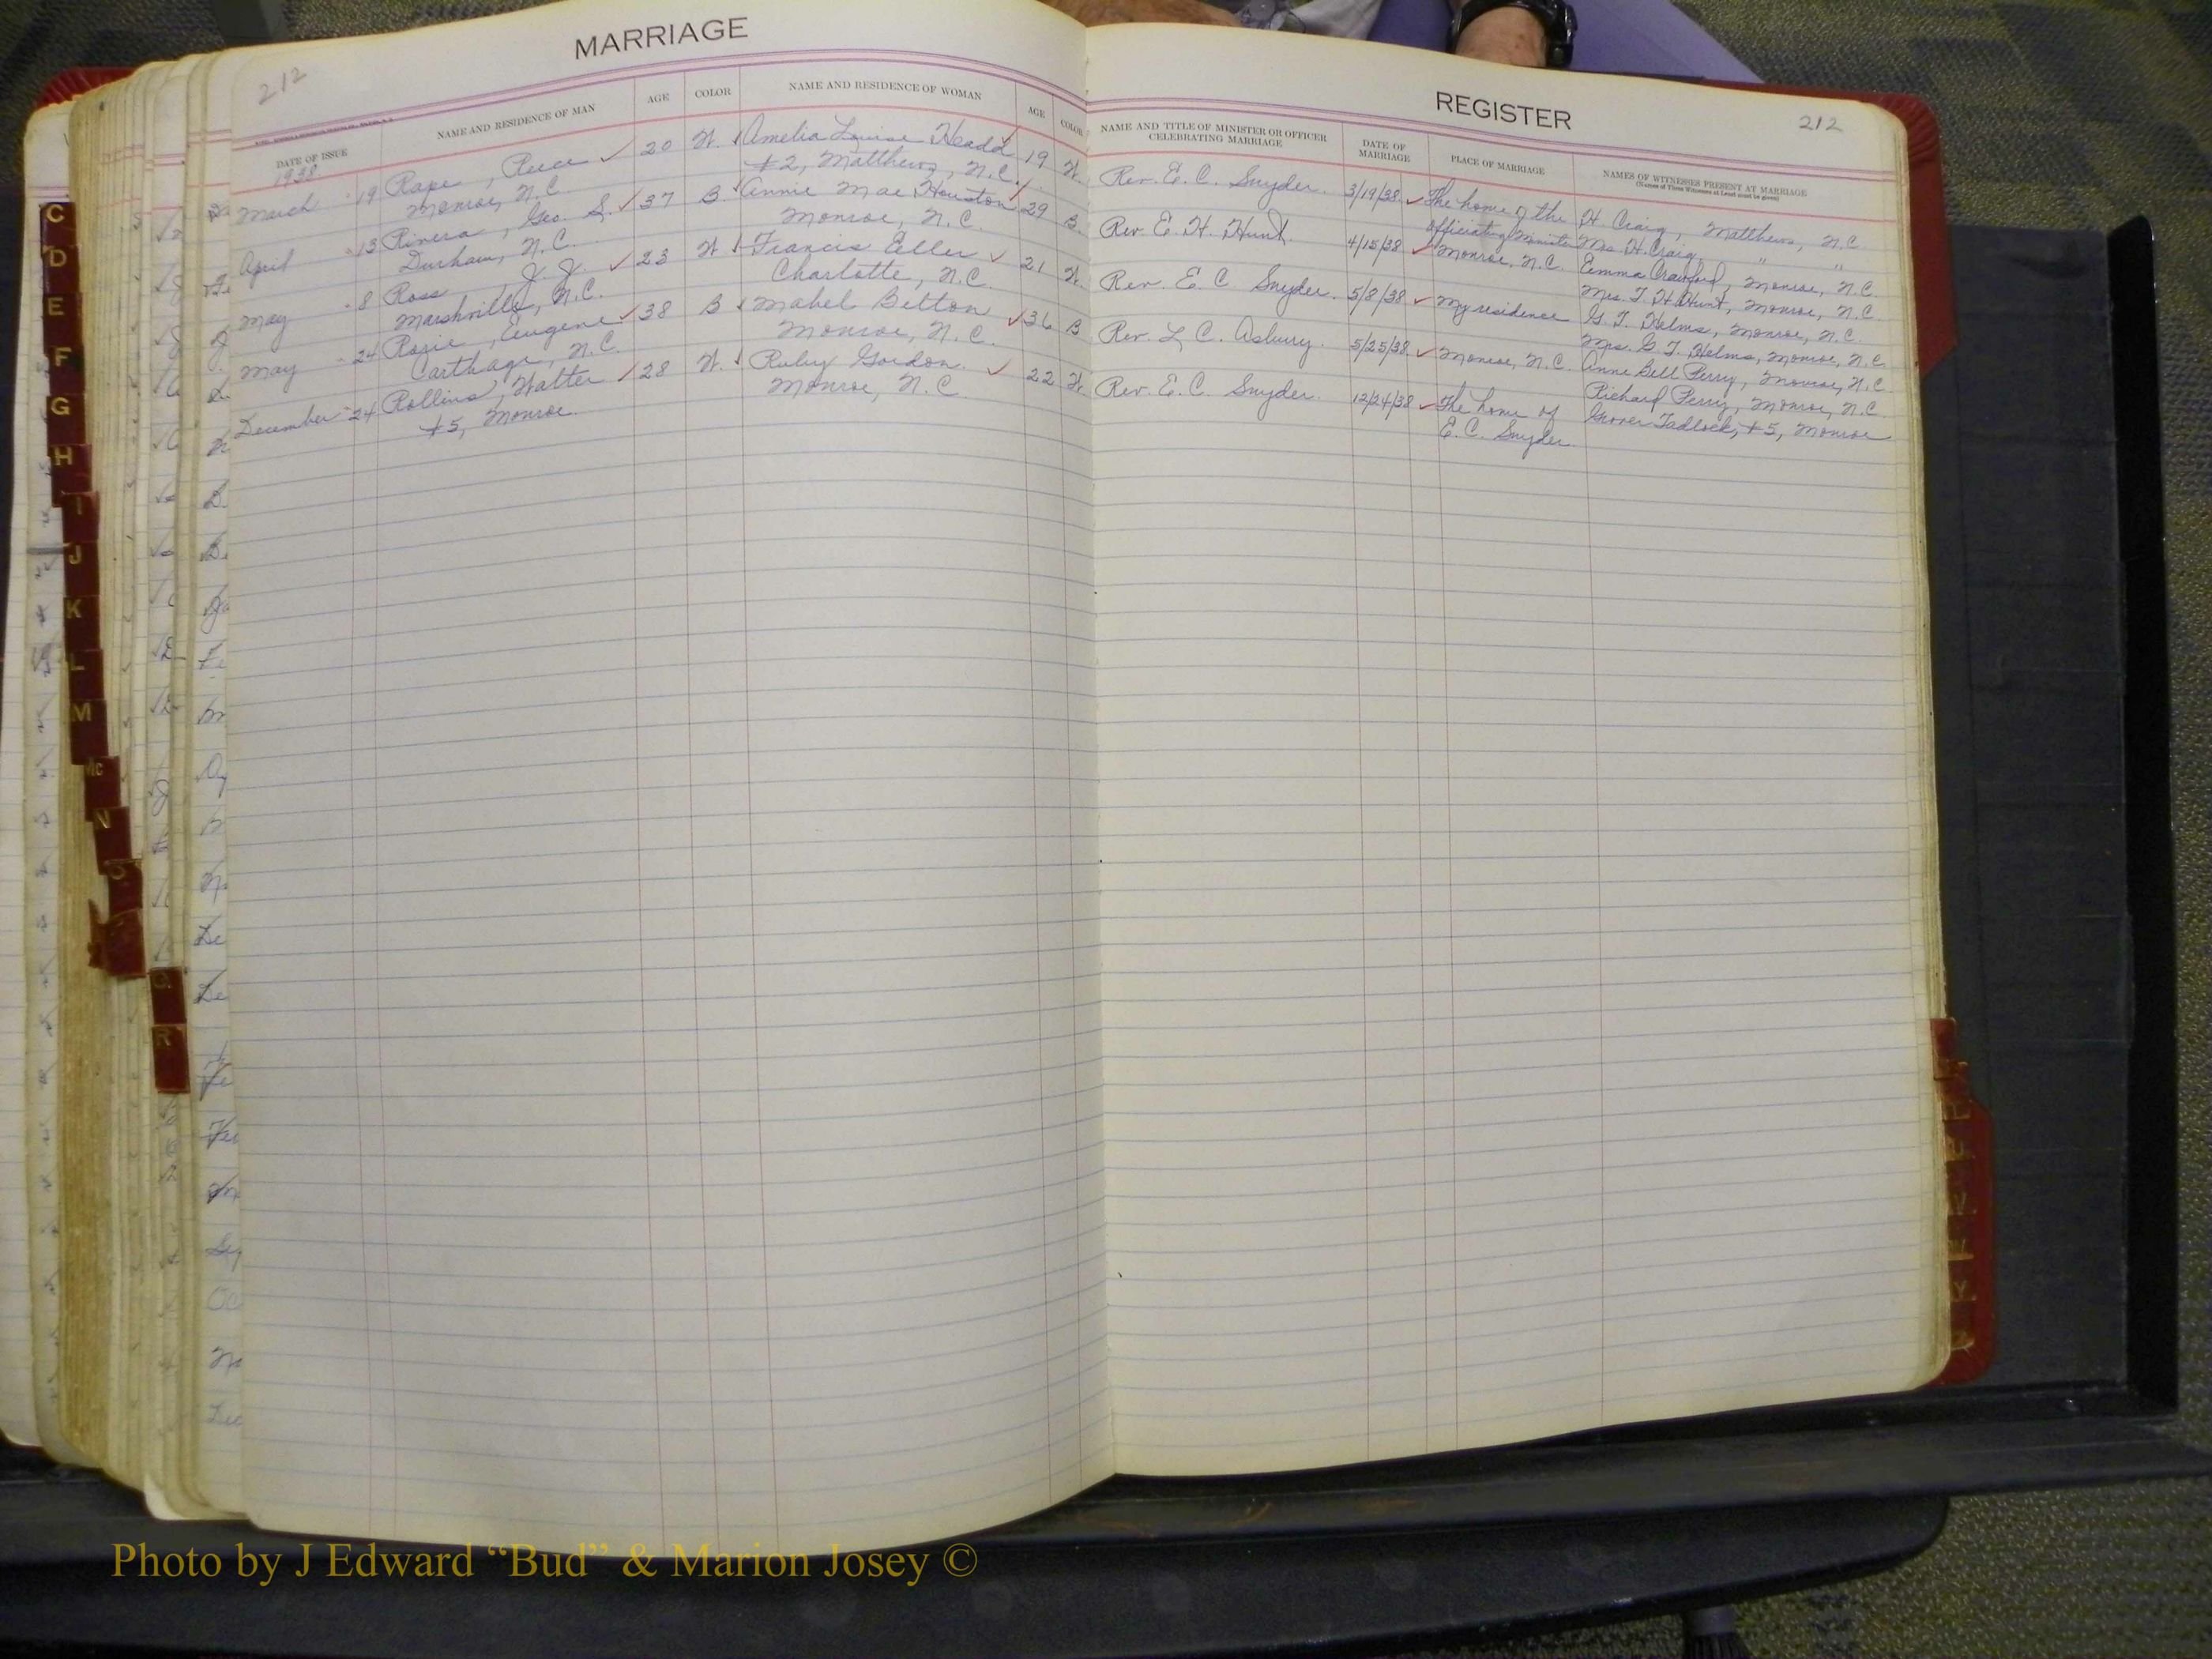 MARRIAGE
212
DATE OF ISSUE
NAME AND RESIDENCE OF MAN
AGE
COLOR
NAME AND RESIDENCE OF WOMAN
AGE
COLOR
1938
March 19 Rape, Reece 20 W. Amelia Louise Headd 19 W.
Monroe, N.C. #2, Matthews, N.C.
April 13 Rivera, Geo. S. 37 B. Annie Mae Houston 29 B.
Durham, N.C. Monroe, N.C.
May 8 Ross, J. J. 23 W Francis Eller 21 W.
Marshville, N.C. Charlotte, N.C.
May 24 Rosie, Eugene 38 B Mabel Bitton 36 B
Carthage, N.C. Monroe, N.C.
December 24 Rollins, Walter 28 W. Ruby Gordon 22 W.
#5, Monroe. Monroe, N.C.
REGISTER
212
NAME AND TITLE OF MINISTER OR OFFICER
CELEBRATING MARRIAGE
DATE OF
MARRIAGE
PLACE OF MARRIAGE
NAMES OF WITNESSES PRESENT AT MARRIAGE
(Names of Three Witnesses at Least must be given)
Rev. E. C. Snyder. 3/19/38 The home of the H. Craig, Matthews, N.C.
officiating minister Mrs. H. Craig, " "
Rev. E. H. Hunt. 4/15/38 Monroe, N.C. Emma Crawford, Monroe, N.C.
Mrs. T. H. Hunt, Monroe, N.C.
Rev. E. C. Snyder. 5/8/38 My residence G. T. Helms, Monroe, N.C.
Mrs. G. T. Helms, Monroe, N.C.
Rev. L. C. Asbury. 5/25/38 Monroe, N.C. Anne Bell Perry, Monroe, N.C.
Richard Perry, Monroe, N.C.
Rev. E. C. Snyder. 12/24/38 The home of Grover Tadlock, #5, Monroe
E. C. Snyder.
C
D
E
F
G
H
I
J
K
L
M
Mc
N
O
Q
R
Photo by J Edward “Bud” & Marion Josey ©